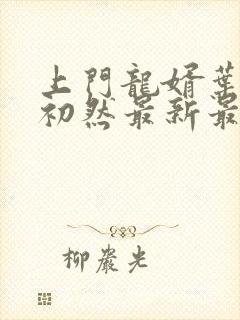 上門龍婿葉
初然最新最
柳巖光